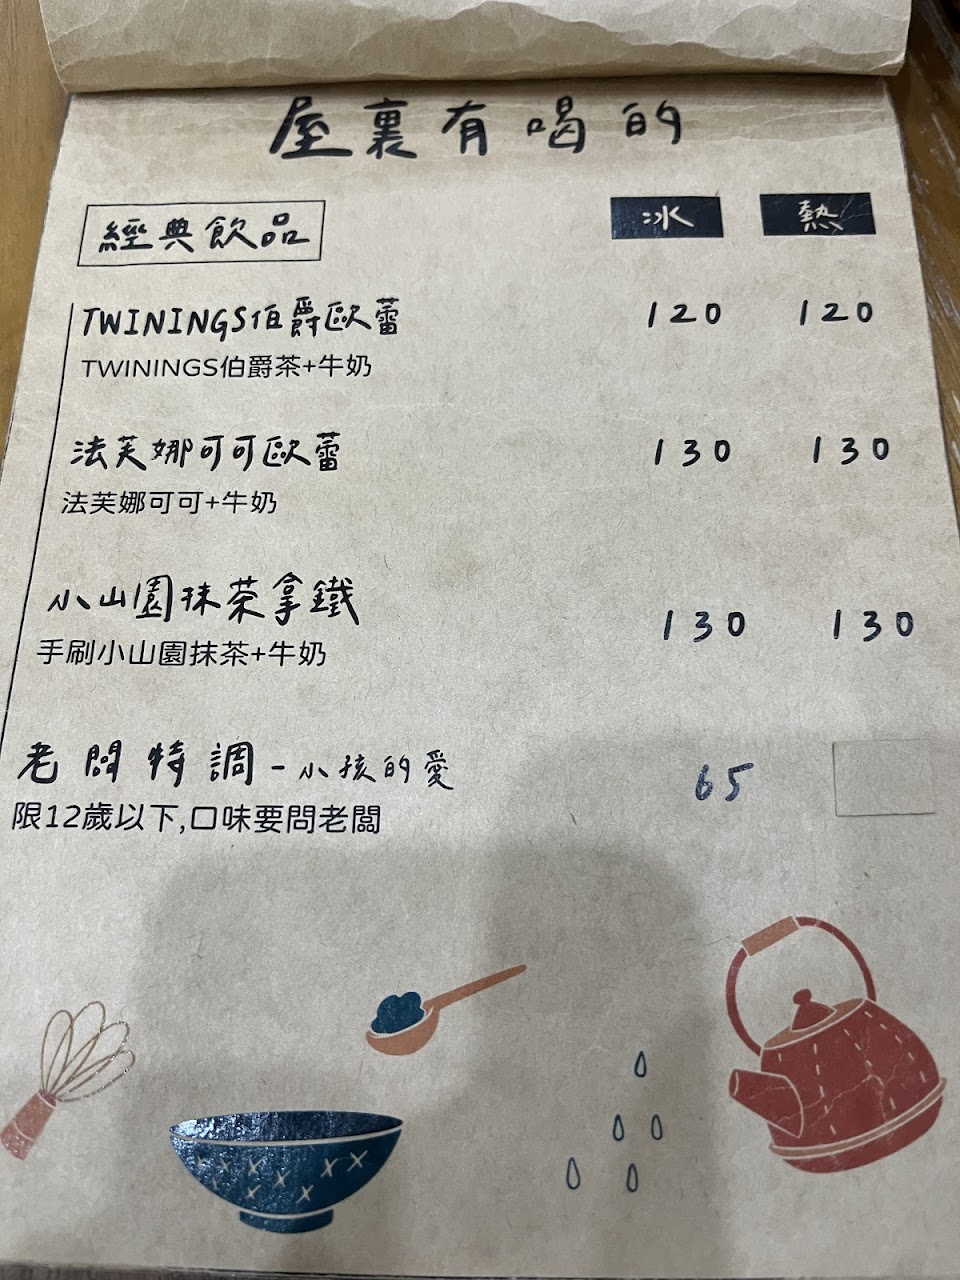 屋裏有喝的
經典飲品 冰 熱
TWININGS伯爵歐蕾 120 120
TWININGS伯爵茶+牛奶
法芙娜可可歐蕾 130 130
法芙娜可可+牛奶
小山園抹茶拿鐵 130 130
手刷小山園抹茶+牛奶
老闆特調-小孩的愛 65
限12歲以下,口味要問老闆